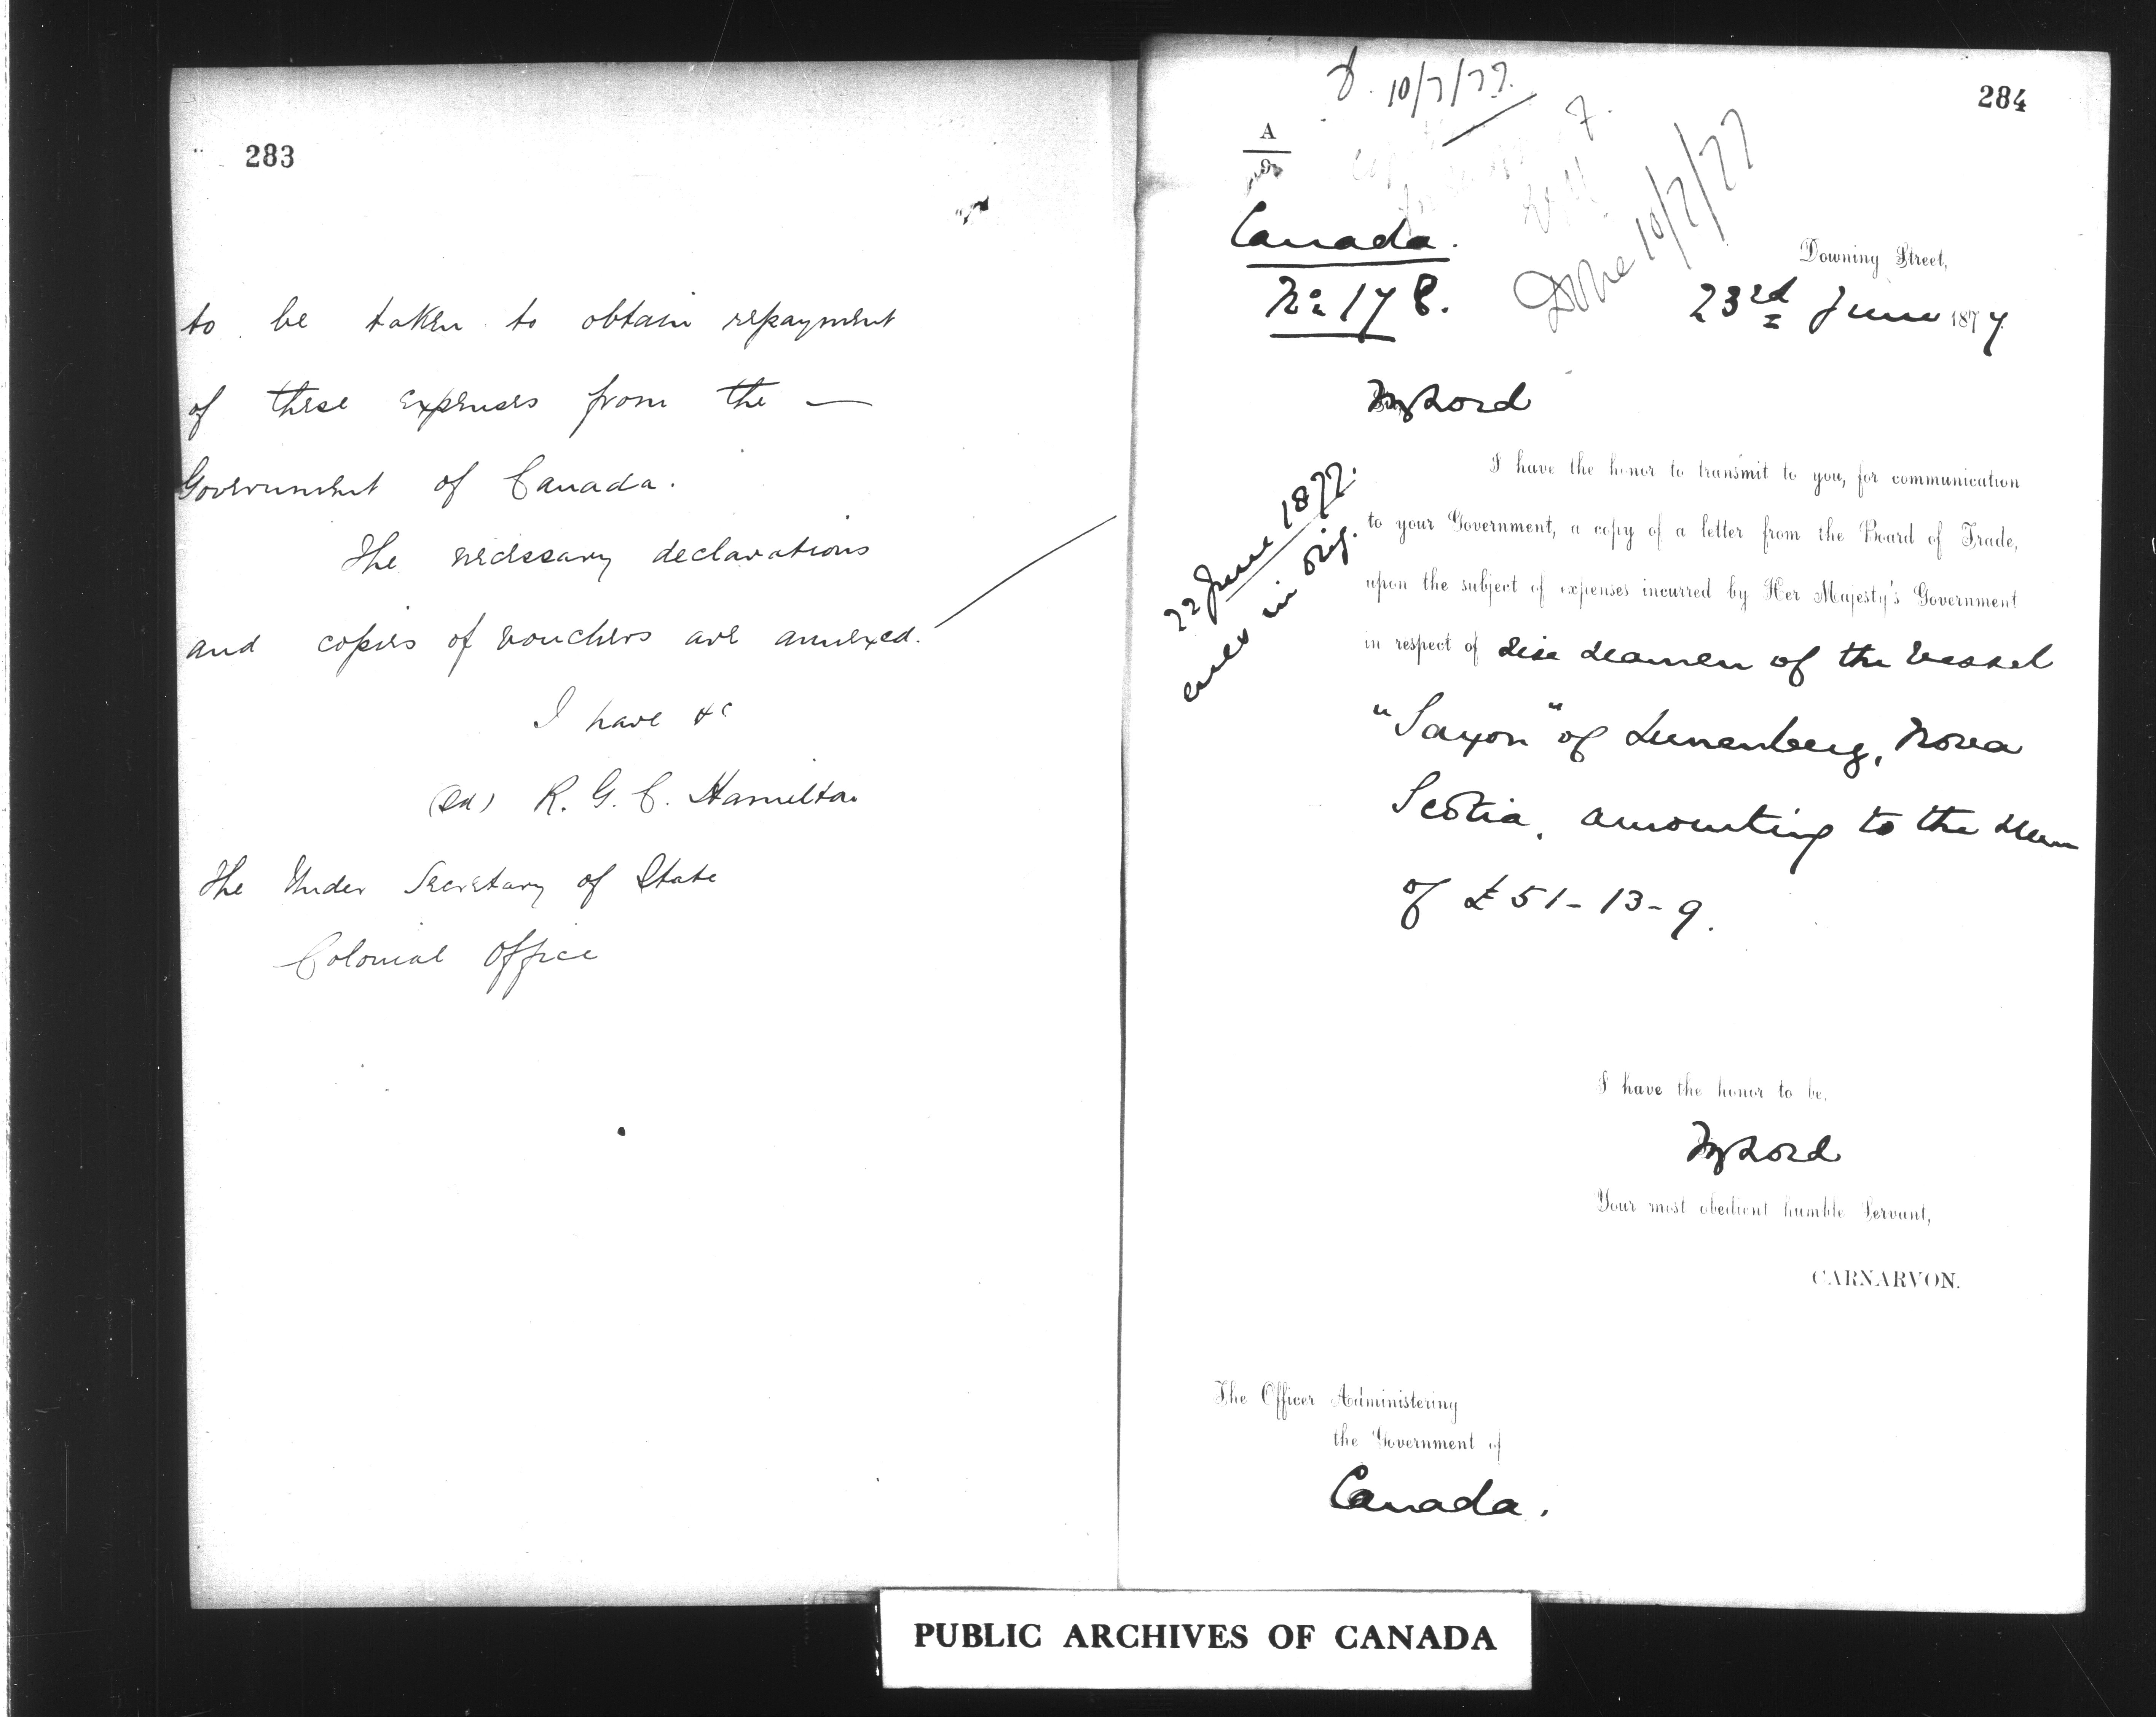 283
to be taken to obtain repayment
of these expenses from the —
Government of Canada.
The necessary declarations
and copies of vouchers are annexed.
I have &c
(Sd) R. G. C. Hamilton
The Under Secretary of State
Colonial Office
284
10/7/77.
A
Canada.
No 178.
Done 10/7/77
Downing Street,
23rd June 1877
My Lord
22 June 1877.
encls in orig.
I have the honor to transmit to you, for communication
to your Government, a copy of a letter from the Board of Trade,
upon the subject of expenses incurred by Her Majesty's Government
in respect of seamen of the vessel
"Saxon" of Lunenberg, Nova
Scotia, amounting to the sum
of £51-13-9.
I have the honor to be,
My Lord
Your most obedient humble Servant,
CARNARVON.
The Officer Administering
the Government of
Canada.
PUBLIC ARCHIVES OF CANADA